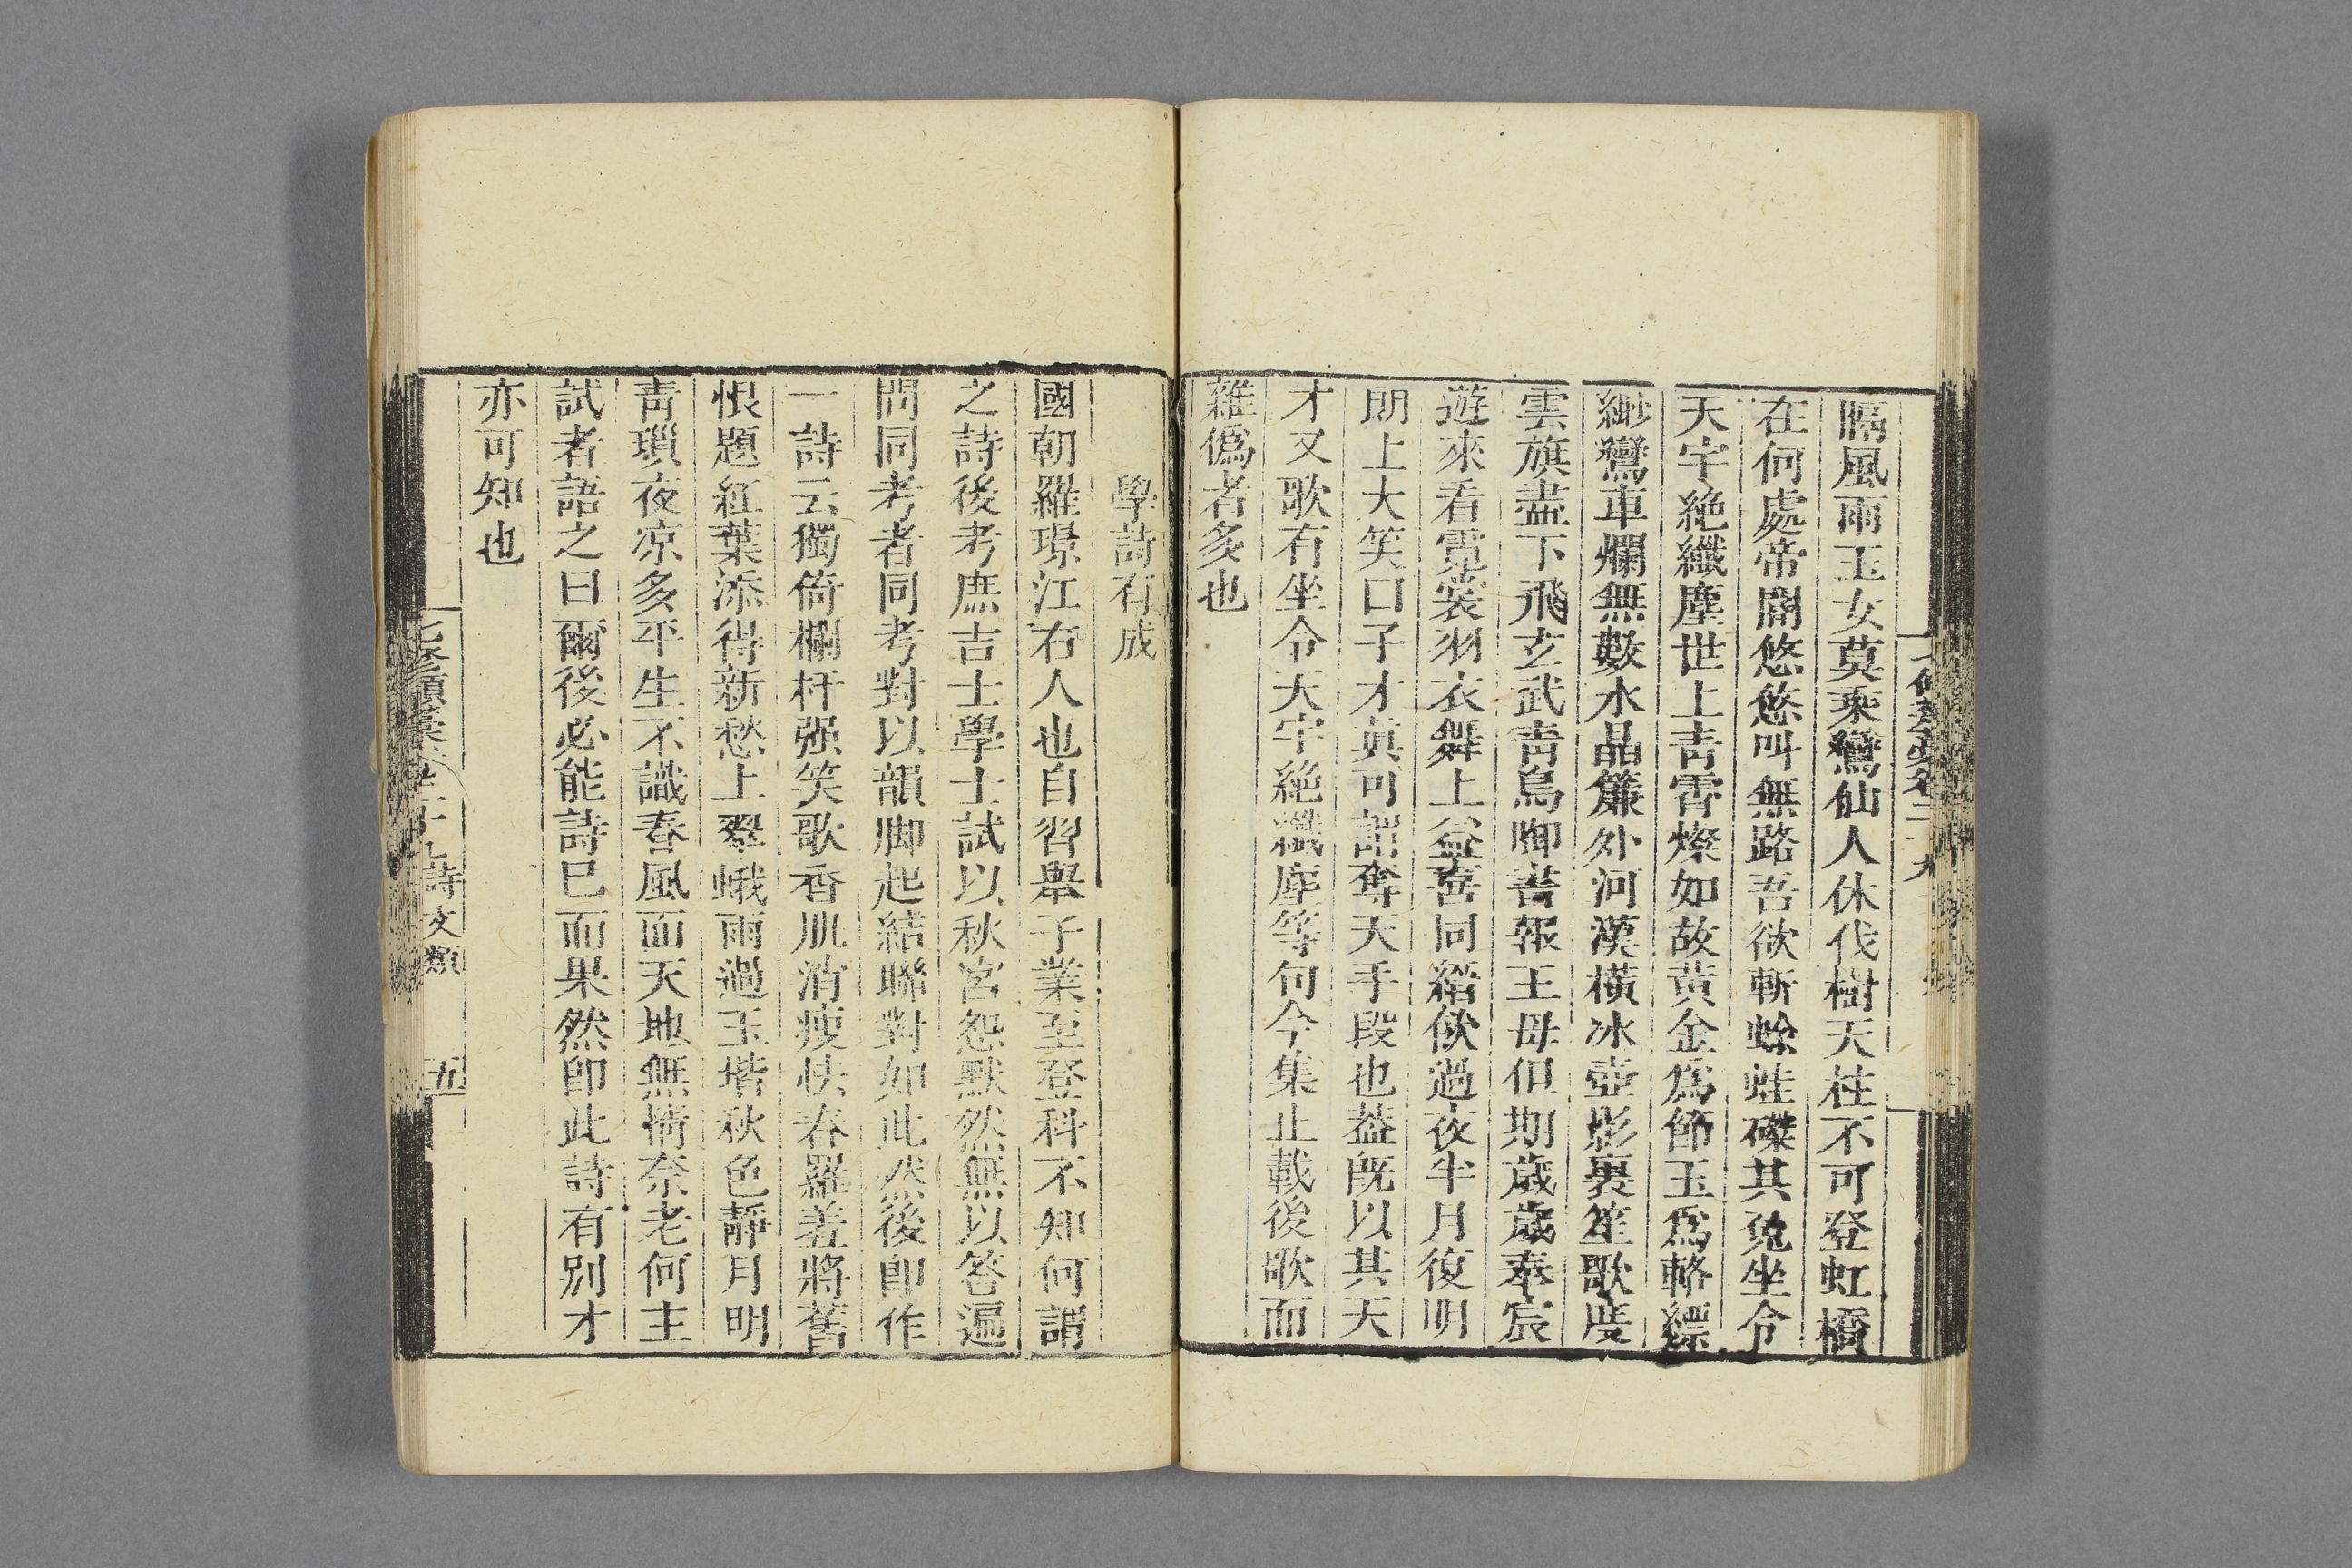 隔風雨玉女莫乘鸞仙人休伐樹天柱不可登虹橋
在何處帝閽悠悠叫無路吾欲斬蜍蛙磔其兔坐令
天宇絶纖塵世上青霄燦如故黃金爲節玉爲輅縹
緲鸞車爛無數水晶簾外河漢橫冰壺影裏笙歌度
雲旗盡下飛玄武青鳥啣書報王母但期歲歲奉宸
遊來看霓裳羽衣舞上益喜同縉候過夜半月復明
朗上大笑曰子才真可謂奪天手段也葢旣以其天
才又歌有坐令天宇絶纖塵等句今集止載後歌而
雜僞者多也
學詩有成
國朝羅璟江右人也自習舉子業至登科不知何謂
之詩後考庶吉士學士試以秋宮怨默然無以答遍
問同考者同考對以韻脚起結聯對如此然後卽作
一詩云獨倚欄杆强笑歌香肌消瘦怯春羅羞將舊
恨題紅葉添得新愁上翠蛾雨過玉堦秋色靜月明
青瑣夜凉多平生不識春風面天地無情奈老何主
試者語之曰爾後必能詩已而果然卽此詩有别才
亦可知也
七修類藁 詩文類 五